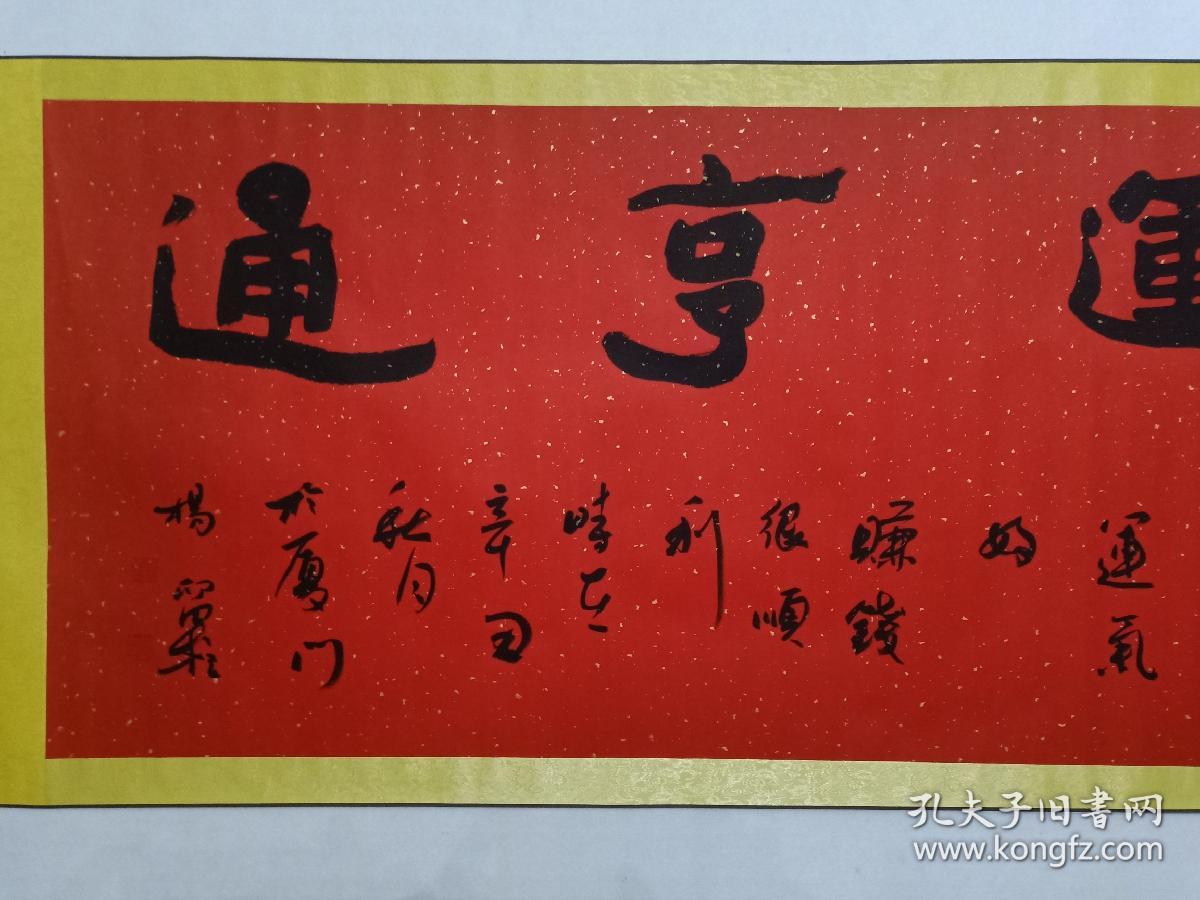 運亨通
運氣
好
賺錢
很順
利
時在
辛丑
秋月
於厦門
楊
孔夫子旧书网
www.kongfz.com